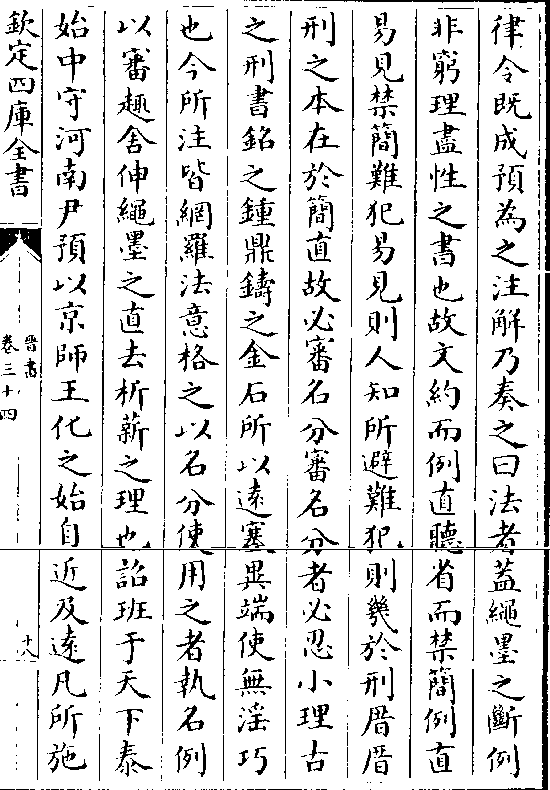 律令既成預為之注解乃奏之曰法者葢繩墨之斷例
非窮理盡性之書也故文約而例直聽省而禁簡例直
易見禁簡難犯易見則人知所避難犯則幾於刑厝厝
刑之本在於簡直故必審名分審名分者必忍小理古
之刑書銘之鍾鼎鑄之金石所以遠塞異端使無淫巧
也今所注皆網羅法意格之以名分使用之者執名例
以審趣舍伸繩墨之直去析薪之理也詔班于天下泰
始中守河南尹預以京師王化之始自近及遠凡所施
欽定四庫全書
晉書
卷三十四
十八